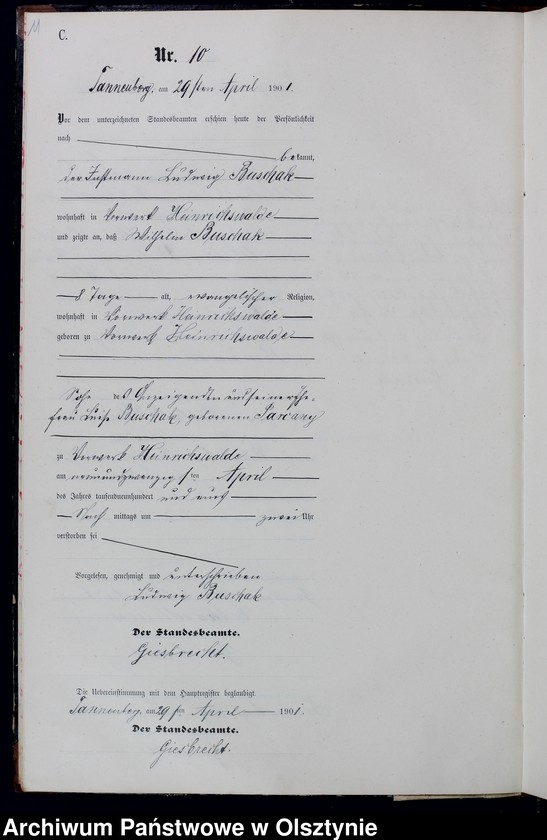 11
C.
Nr. 10
Tannenberg, am 29sten April 1901.
Vor dem unterzeichneten Standesbeamten erschien heute der Persönlichkeit
nach
bekannt,
der Instmann Ludwig Buschak
wohnhaft in Vorwerk Heinrichswalde
und zeigte an, daß Wilhelm Buschak
8 Tage alt, evangelischer Religion,
wohnhaft in Vorwerk Heinrichswalde
geboren zu Vorwerk Heinrichswalde
Sohn des Anzeigenden und seiner Ehe-
frau Luise Buschak, geborenen
zu Vorwerk Heinrichswalde
am neunundzwanzigsten April
des Jahres tausendneunhundert und eins
Nachmittags um zwei Uhr
verstorben sei
Vorgelesen, genehmigt und unterschrieben
Ludwig Buschak
Der Standesbeamte.
Giesbrecht.
Die Uebereinstimmung mit dem Hauptregister beglaubigt.
Tannenberg, am 29sten April 1901.
Der Standesbeamte.
Giesbrecht.
Archiwum Państwowe w Olsztynie